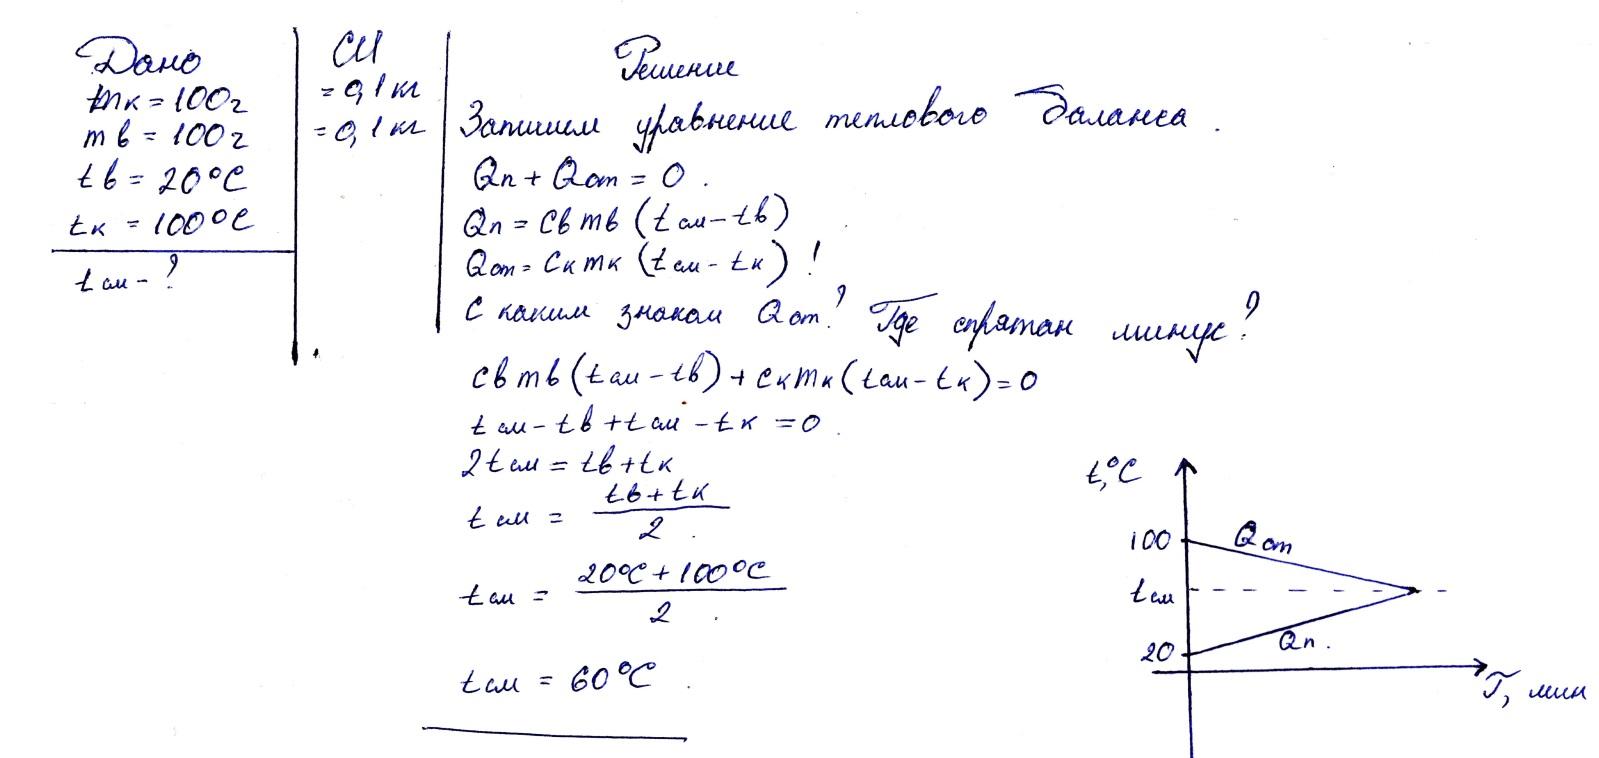 Дано
mк = 100г
mв = 100г
tв = 20°C
tк = 100°C
tсм - ?
СИ
= 0,1 кг
= 0,1 кг
Решение
Запишем уравнение теплового баланса.
Qп + Qот = 0.
Qп = Cв mв (tсм - tв)
Qот = Cк mк (tсм - tк) !
С каким знаком Qот? Где спрятан минус?
Cв mв (tсм - tв) + Cк mк (tсм - tк) = 0
tсм - tв + tсм - tк = 0.
2tсм = tв + tк
tсм = (tв + tк) / 2.
tсм = (20°C + 100°C) / 2.
tсм = 60°C.
t,°C
100
Qот
tсм
20
Qп.
T, мин